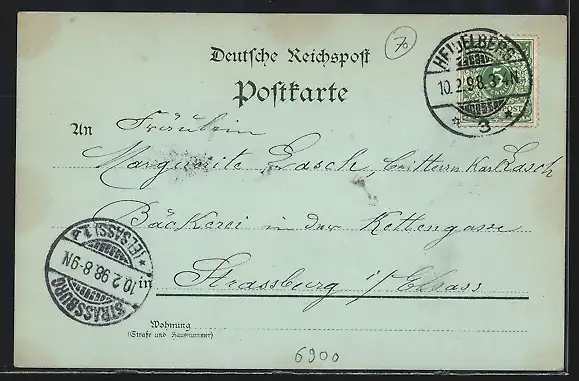 70
Deutsche Reichspost
Postkarte
HEIDELBERG
10.2.98.3-4N
* 3 *
An Fräulein
Marguerite Lasch, bei Herrn Karl Lasch
Bäckerei in der Kettengasse
in Strassburg i/Elsass
STRASSBURG
10.2.98.8-9N
* (ELSASS) 1.
Wohnung
(Straße und Hausnummer)
6900